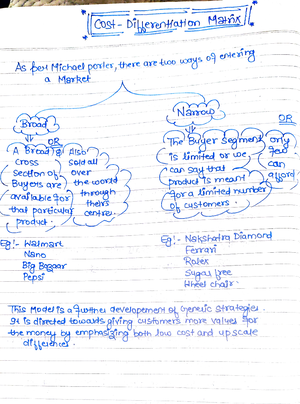 Cost-Differentiation Matrix
As per Michael porter, there are two ways of entering
a Market
Broad
OR
A Broad
cross
section of
Buyers are
available for
that particular
product.
Also
sold all
over
the world
through
centre.
Narrow
The Buyer Segment
is limited or we
can say that
product is meant
for a limited number
of customers.
OR
only
few
can
afford
Eg:- Walmart
Nano
Big Bazaar
Pepsi
Eg:- Nakshatra Diamond
Ferrari
Rolex
Sugar free
Wheel chair.
This Model is a further developement of Generic Strategies.
It is directed towards giving customers more values for
the money by emphasizing both low cost and upscale
differences.